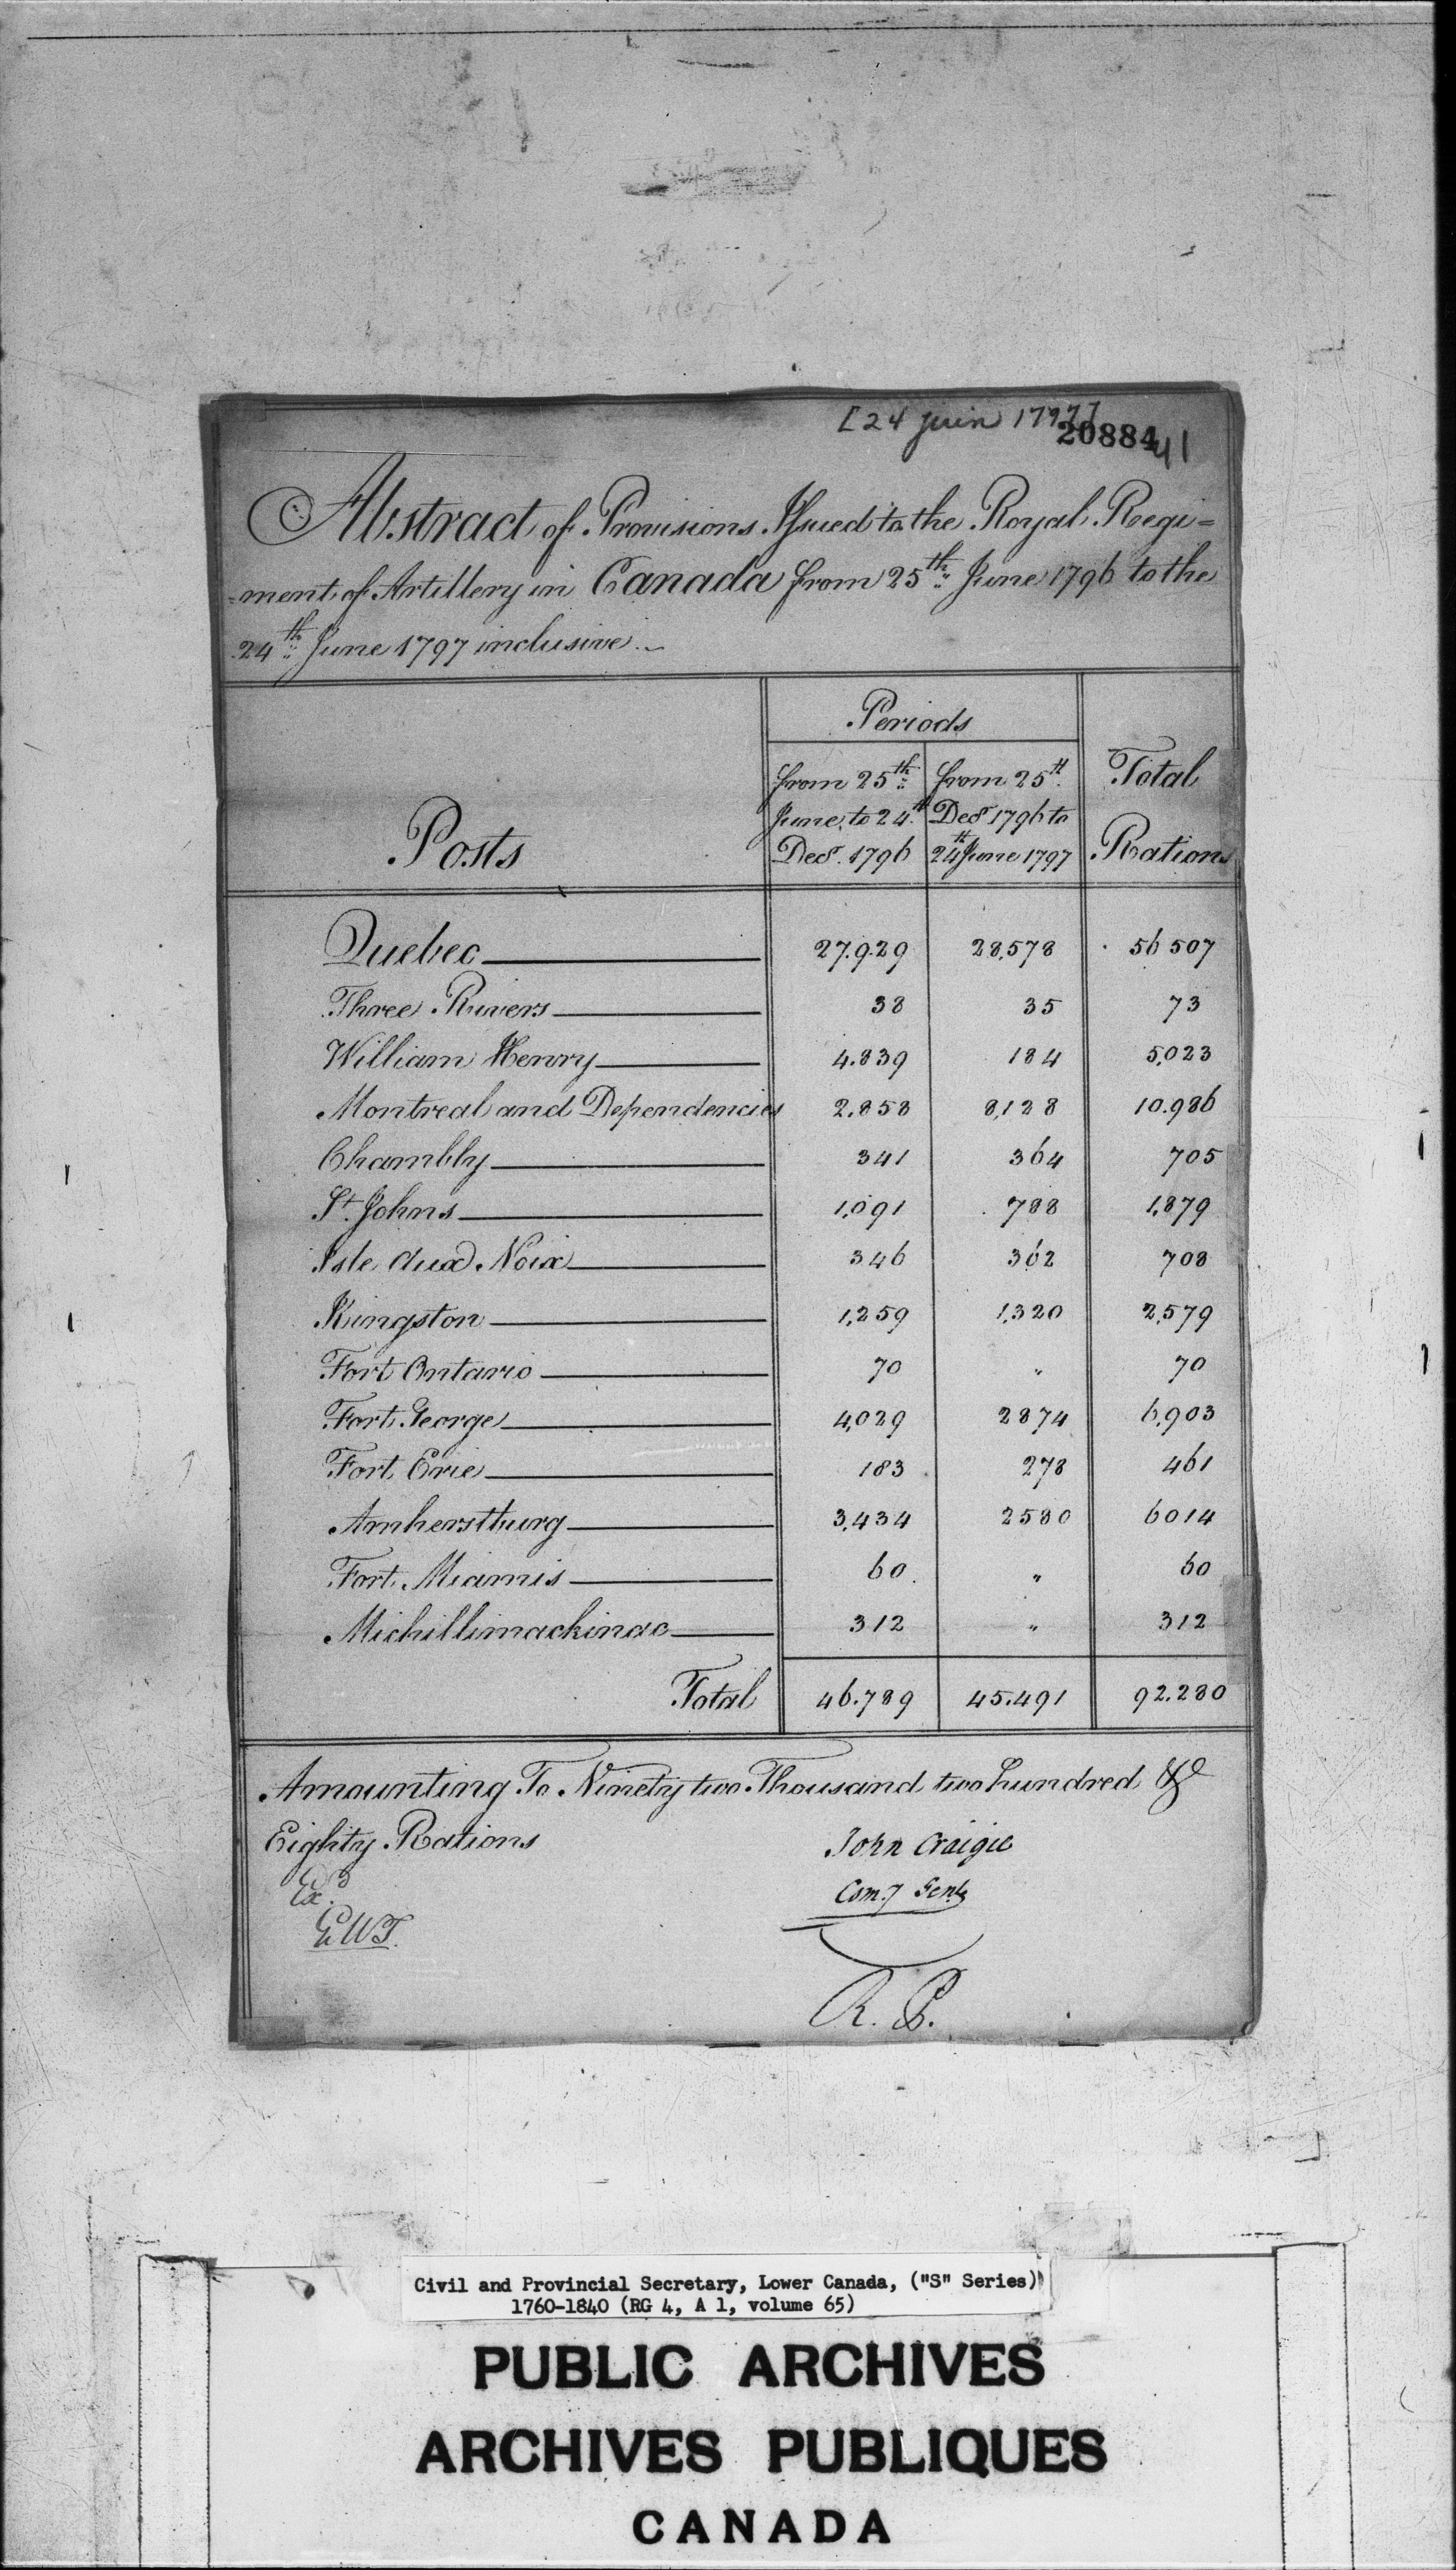 [24 juin 1797]
20884
41
Abstract of Provisions Issued to the Royal Regi=
=ment of Artillery in Canada from 25th June 1796 to the
24th June 1797 inclusive.
Periods
Posts
from 25th June to 24th Decr. 1796
from 25th Decr 1796 to 24th June 1797
Total Rations
Quebec 27.929 28,578 56507
Three Rivers 38 35 73
William Henry 4.839 184 5,023
Montreal and Dependencies 2.858 8,128 10.986
Chambly 341 364 705
St. Johns 1,091 788 1,879
Isle Aux Noix 346 362 708
Kingston 1,259 1,320 2,579
Fort Ontario 70 " 70
Fort George 4,029 2874 6,903
Fort Erie 183 278 461
Amherstburg 3,434 2580 6014
Fort Miamis 60 " 60
Michillimackinac 312 " 312
Total 46.789 45.491 92.280
Amounting To Ninety two Thousand two hundred &
Eighty Rations
John Craigie
Ex.
Com.y Genl
E.W.T.
R. P.
Civil and Provincial Secretary, Lower Canada, ("S" Series)
1760-1840 (RG 4, A 1, volume 65)
PUBLIC ARCHIVES
ARCHIVES PUBLIQUES
CANADA